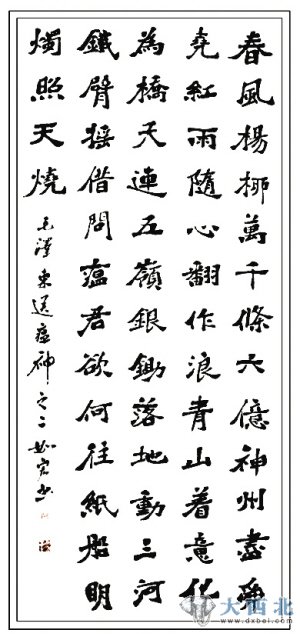 春風楊柳萬千條六億神州盡舜
堯紅雨隨心翻作浪青山着意化
為橋天連五嶺銀鋤落地動三河
鐵臂搖借問瘟君欲何往紙船明
燭照天燒
毛澤東送瘟神之二
大西北
www.dxbei.com